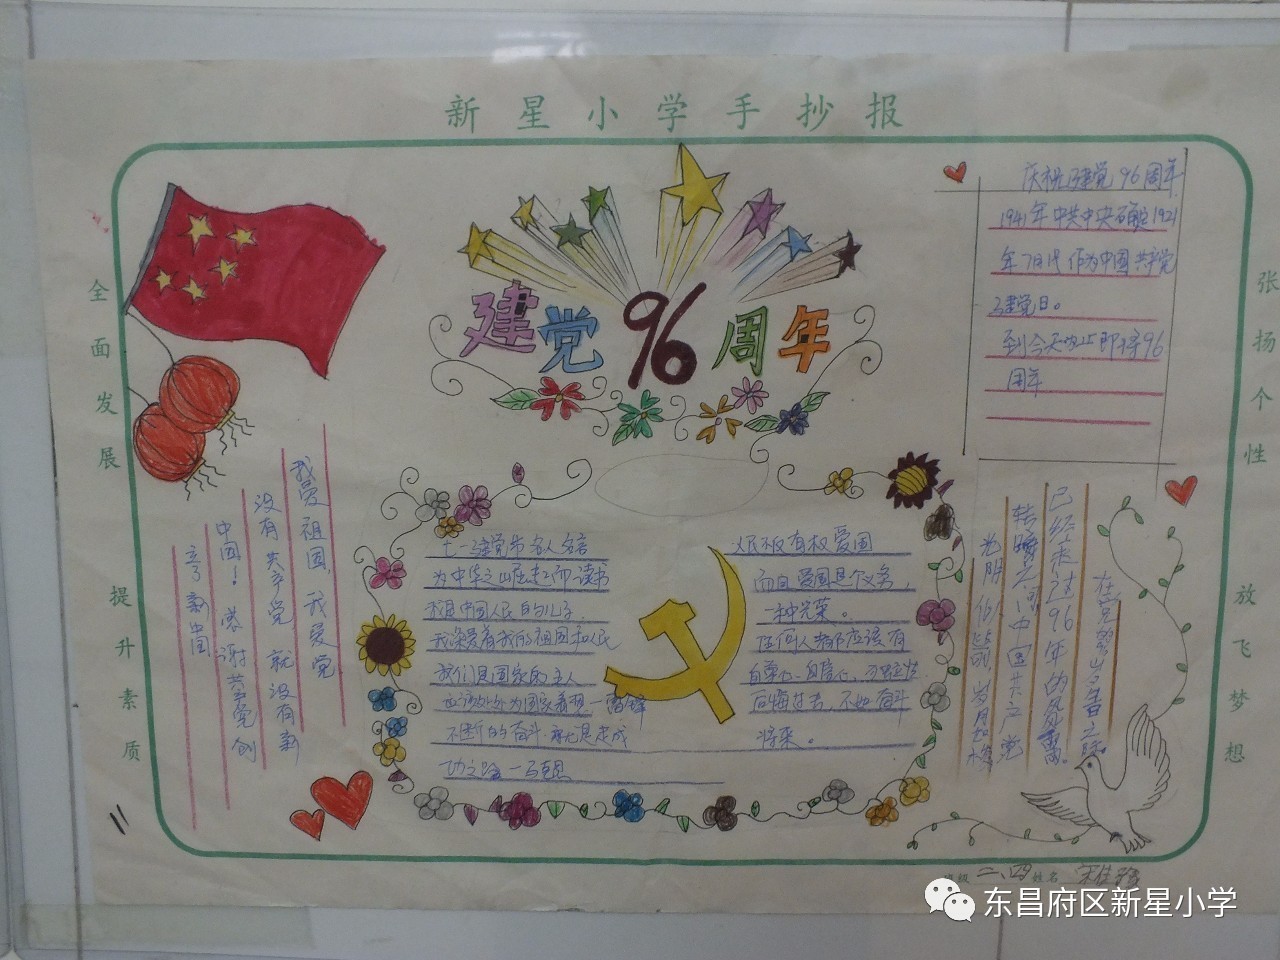 新星小学手抄报
全面发展
提升素质
张扬个性
放飞梦想
建党96周年
庆祝建党96周年
1941年中共中央确定1921
年7月1日作为中国共产党
建党日。
到今天为止即将96
周年
我爱祖国,我爱党
没有共产党 就没有新
中国!感谢 党创
立了新中国
七一建党节名人名言
为中华之崛起而读书
我是中国人民的儿子
我深爱着我的祖国和人民
我们是国家的主人
应该处处为国家着想一雷锋
不断的奋斗就是走成
功之路一
人民不仅有权爱国
而且爱国是个义务,
一种光荣。
任何人都应该有
自尊心、自信心,
后悔过去,不如奋斗
将来。
在党 岁 之际
已经走过96年的风
转 之间中国共产党
光阴似 岁月如梭
班级 二、四 姓名 宋佳
东昌府区新星小学